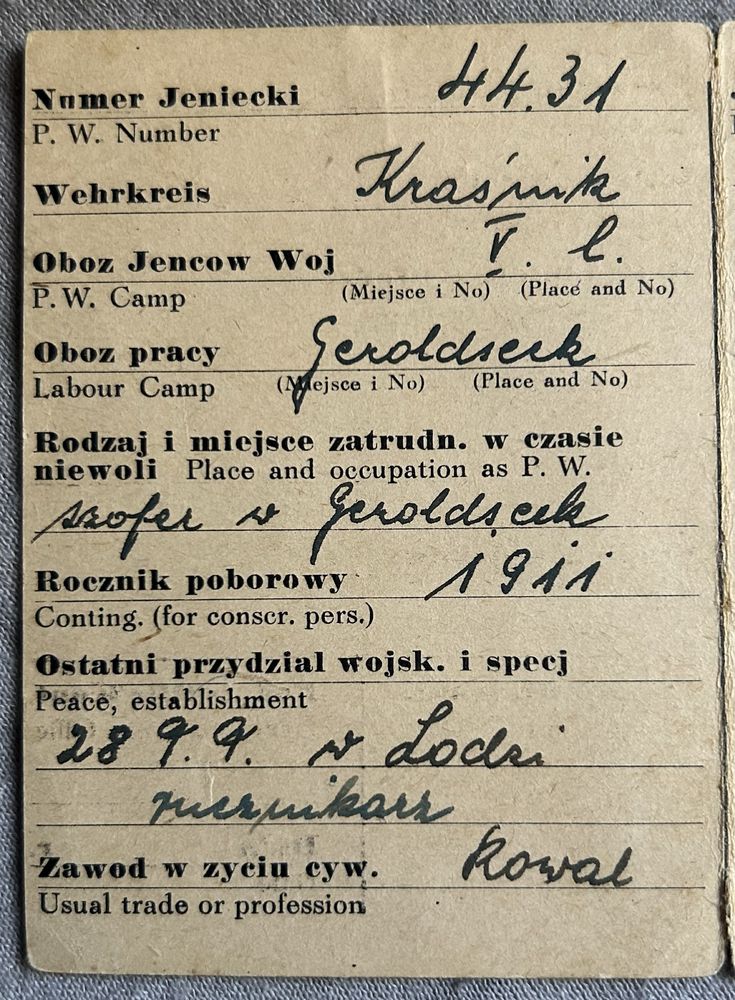 Numer Jeniecki 44.31
P. W. Number
Wehrkreis Kraśnik
Oboz Jencow Woj V. C.
P. W. Camp (Miejsce i No) (Place and No)
Oboz pracy Geroldseek
Labour Camp (Miejsce i No) (Place and No)
Rodzaj i miejsce zatrudn. w czasie
niewoli Place and occupation as P. W.
szofer w Geroldseek
Rocznik poborowy 1911
Conting. (for conscr. pers.)
Ostatni przydzial wojsk. i specj
Peace, establishment
28 9. 9. w Lodzi
Zawod w zyciu cyw. Kowal
Usual trade or profession